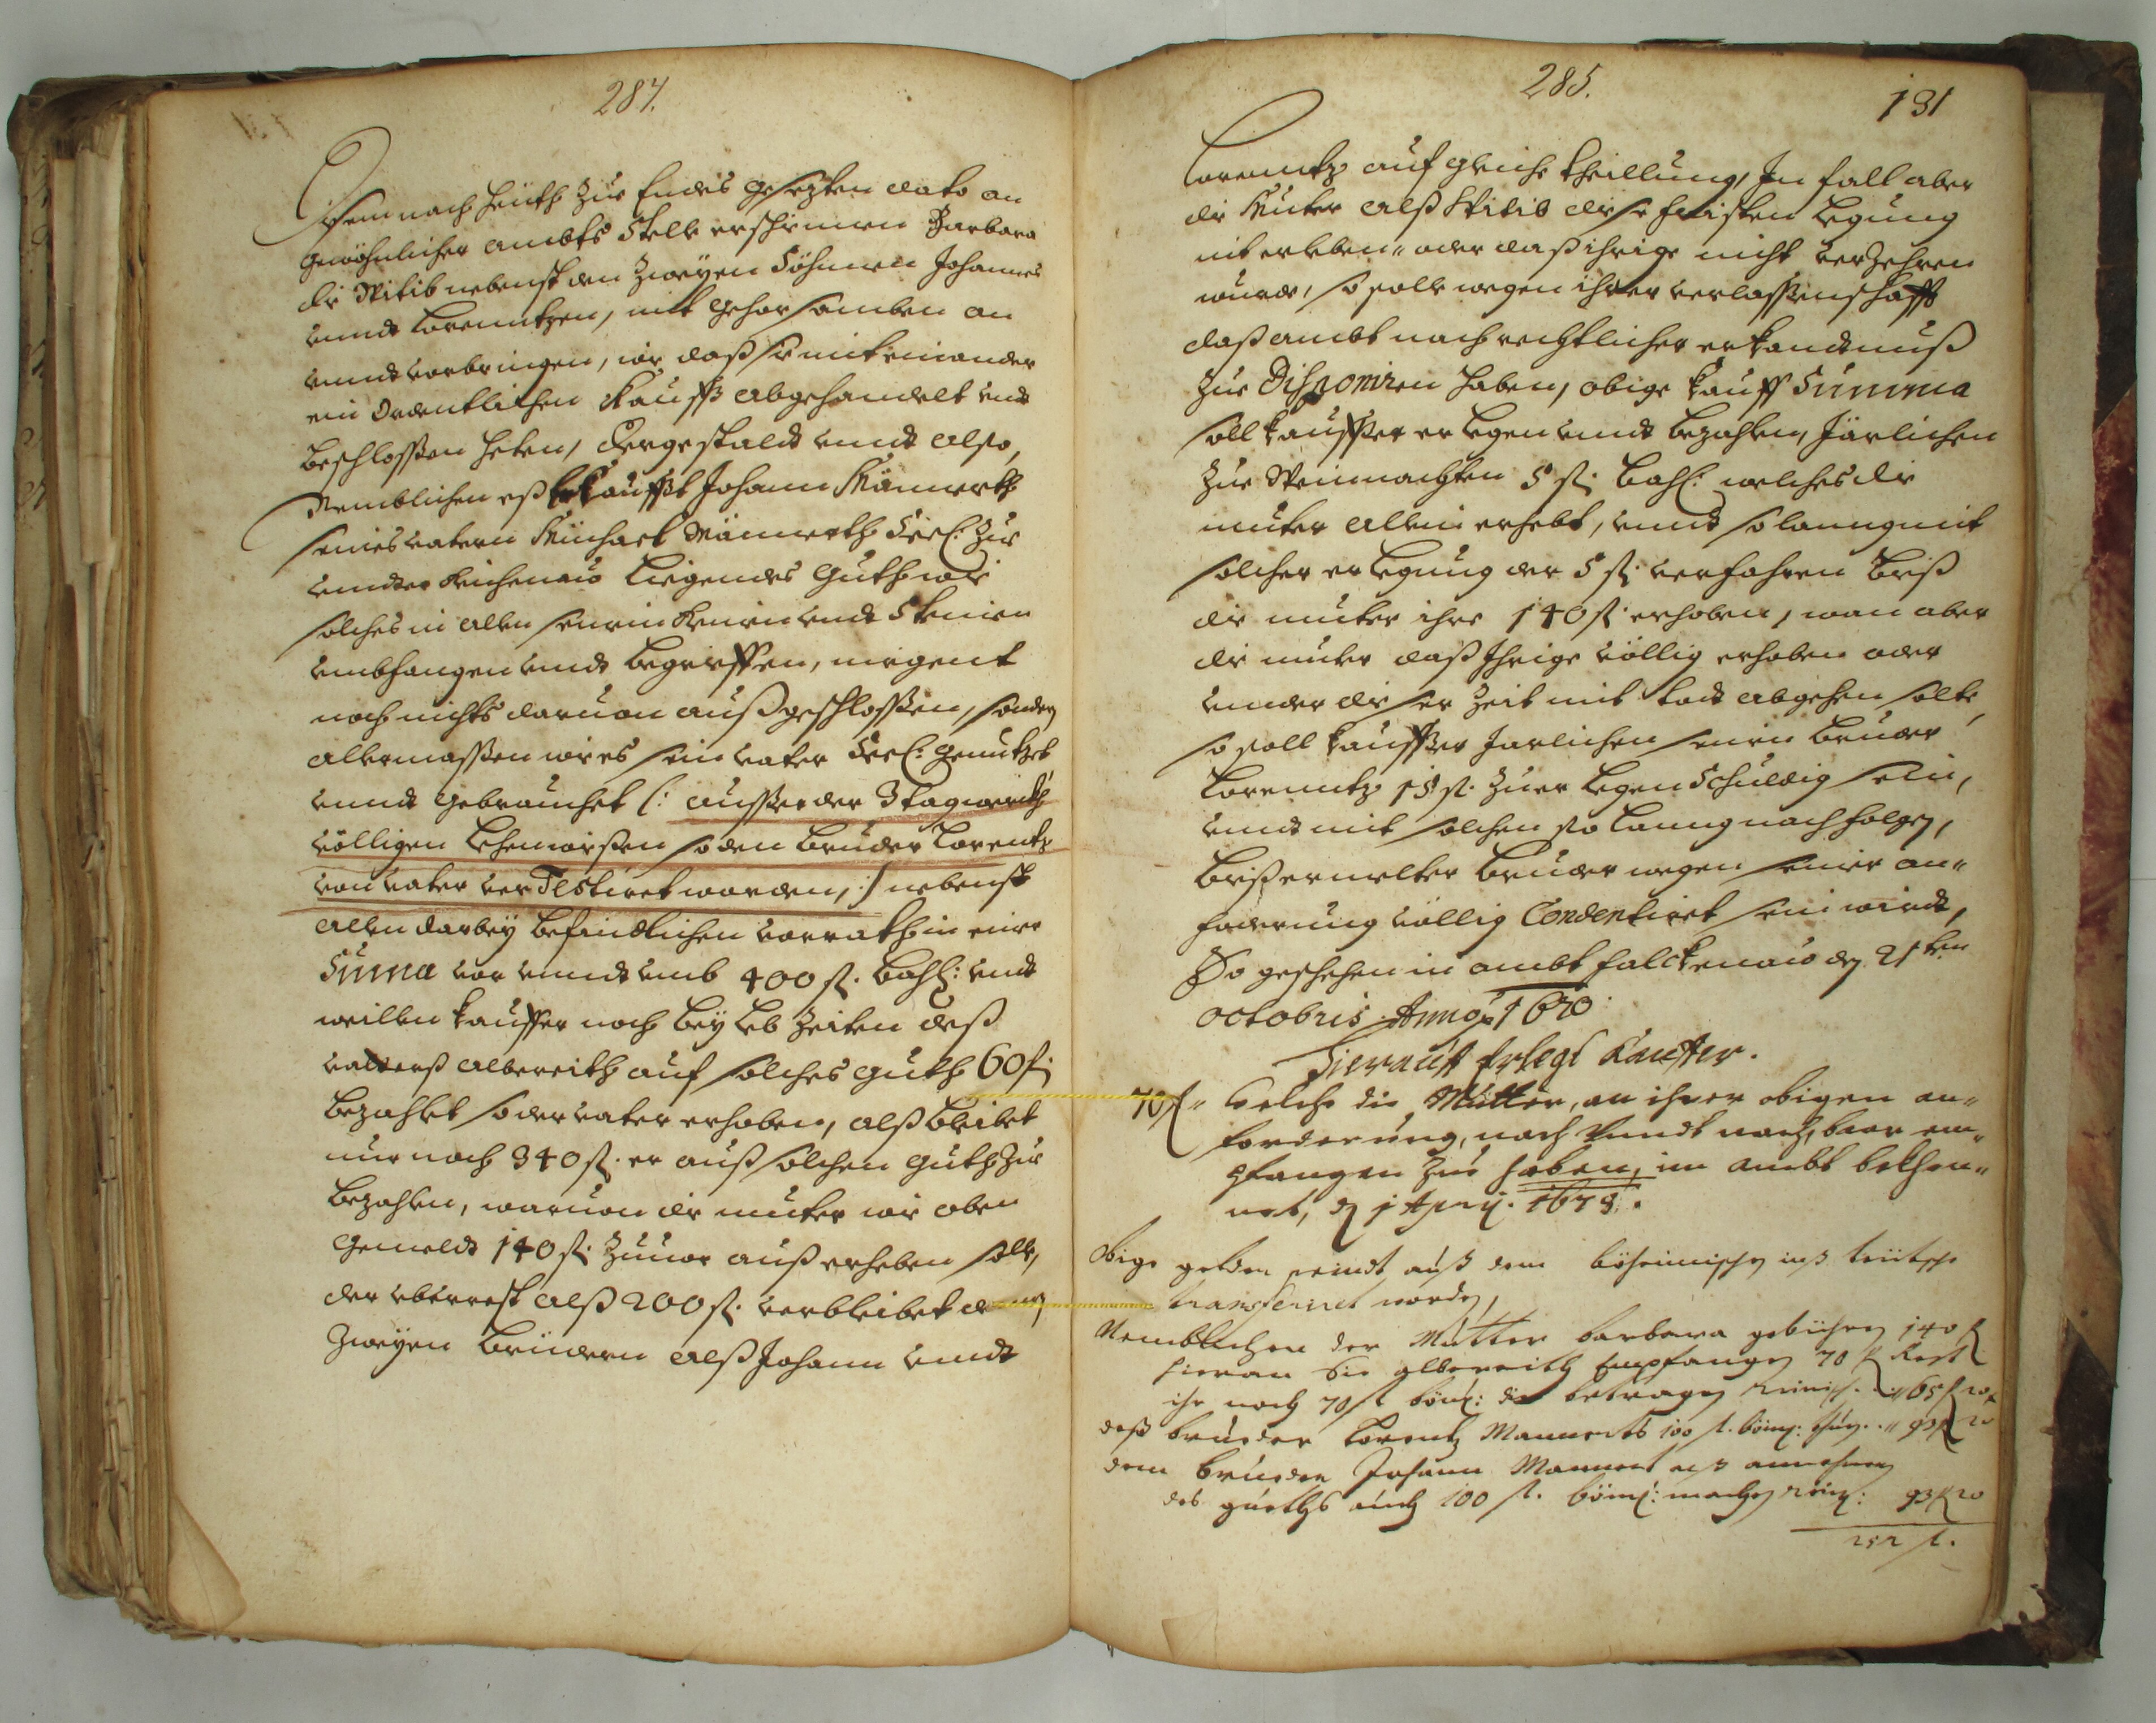 284.
Demnach heüth zur Endes gesezten dato an
gewöhnlicher ambts Stelle erschinnen Barbara
die Witib nebenst den zweÿen Söhnnen Johannes
unndt Lorenntzen, mit gehorsamben an
unndt vorbringen, wie daß sie miteinander
ein Ordentlichen Kauff abgehandelt undt
beschlossen heten, dergestaldt unndt also,
Nemblichen eß Johann Männerth
seines vatern Michael Männerth Seel: zur
unndter Reichenaw liegendes Guth wie
solches in allen seinen Reinen undt Steinen
umbfangen unndt begrieffen, nirgent
noch nichts daruon außgeschlossen, sondern
allermassen wie es sein vater Seel: genutzet
unndt gebrauchet (: ausser der 3 tagwerckh
völligen so den bruder Lorentz
von vater verTestiret worden, :) nebenst
allen darbeÿ befindtlichen vorrath in einer
Suma vor unndt umb 400 fl. Bäh: undt
weillen kauffer noch beÿ leb Zeiten deß
vatterß albereith auf solches guth 60 fl
bezahlt so der vater erhoben, alß bleibet
nur noch 340 fl. er auß solchen guth zu
bezahlen, waruon die muter wie oben
gemeldt 140 fl. zuuor auß erheben solle,
der uberrest alß 200 fl. verbleibet denen
zweÿen brüdern alß Johann unndt
285.
131
Lorenntz auf gleiche theillung, In fall aber
die Muter alß Witib diese fristen legung
nit erleben" oder daß ihrige nicht verzehren
wurde, so solle wegen ihrer verlassenschafft
daß ambt nach rechtlicher erkandtnuß
zur Disponiren haben, obige kauff Summa
soll kauffer erlegen unndt bezahlen, Järlichen
zur Weinnachten 5 fl. Bäh: welches die
muter allein erhebt, unndt so lanng mit
solcher erlegung der 5 fl. verfahren biß
die muter ihre 140 fl. erhoben, wan aber
die muter daß Ihrige völlig erhoben oder
unnder dieser Zeit mit todt abgehen solte,
so soll kauffer Jarlichen seinen bruder
Lorenntz 15 fl. zu erlegen Schuldig sein,
unndt mit solchen so lanng nach folgen,
biß ermelter bruder wegen seiner an"
foderung völlig Contentiret sein wirdt,
So geschehen in ambt falckenaw den 21ten
octobris Anno 1670
Hierauff Erlegt Kauffer.
70 fl" Welche die Mutter, an ihrer obigen an"
forderung, nach unndt nach, baar em"
pfangen zue haben, im ambt bekhen"
net, den 1 Aprÿ. 1678.
Obige gelder seindt auß dem böheimischen inß teütsche
transferiret worden,
Nemblichen der Mutter barbara gebühren 140 fl
hieran Sie albereith Empfangen 70 fl Rest
ihr noch 70 fl böm: die betragen reinisch. " 65 fl 20 x
deß bruder Lorentz Mannerts 100 fl. böm: thuen. " 93 fl 20
dem bruder Johann Mannert alß annehmer
des gueths auch 100 fl. böm: machen rein: 93 fl 20
252 fl.